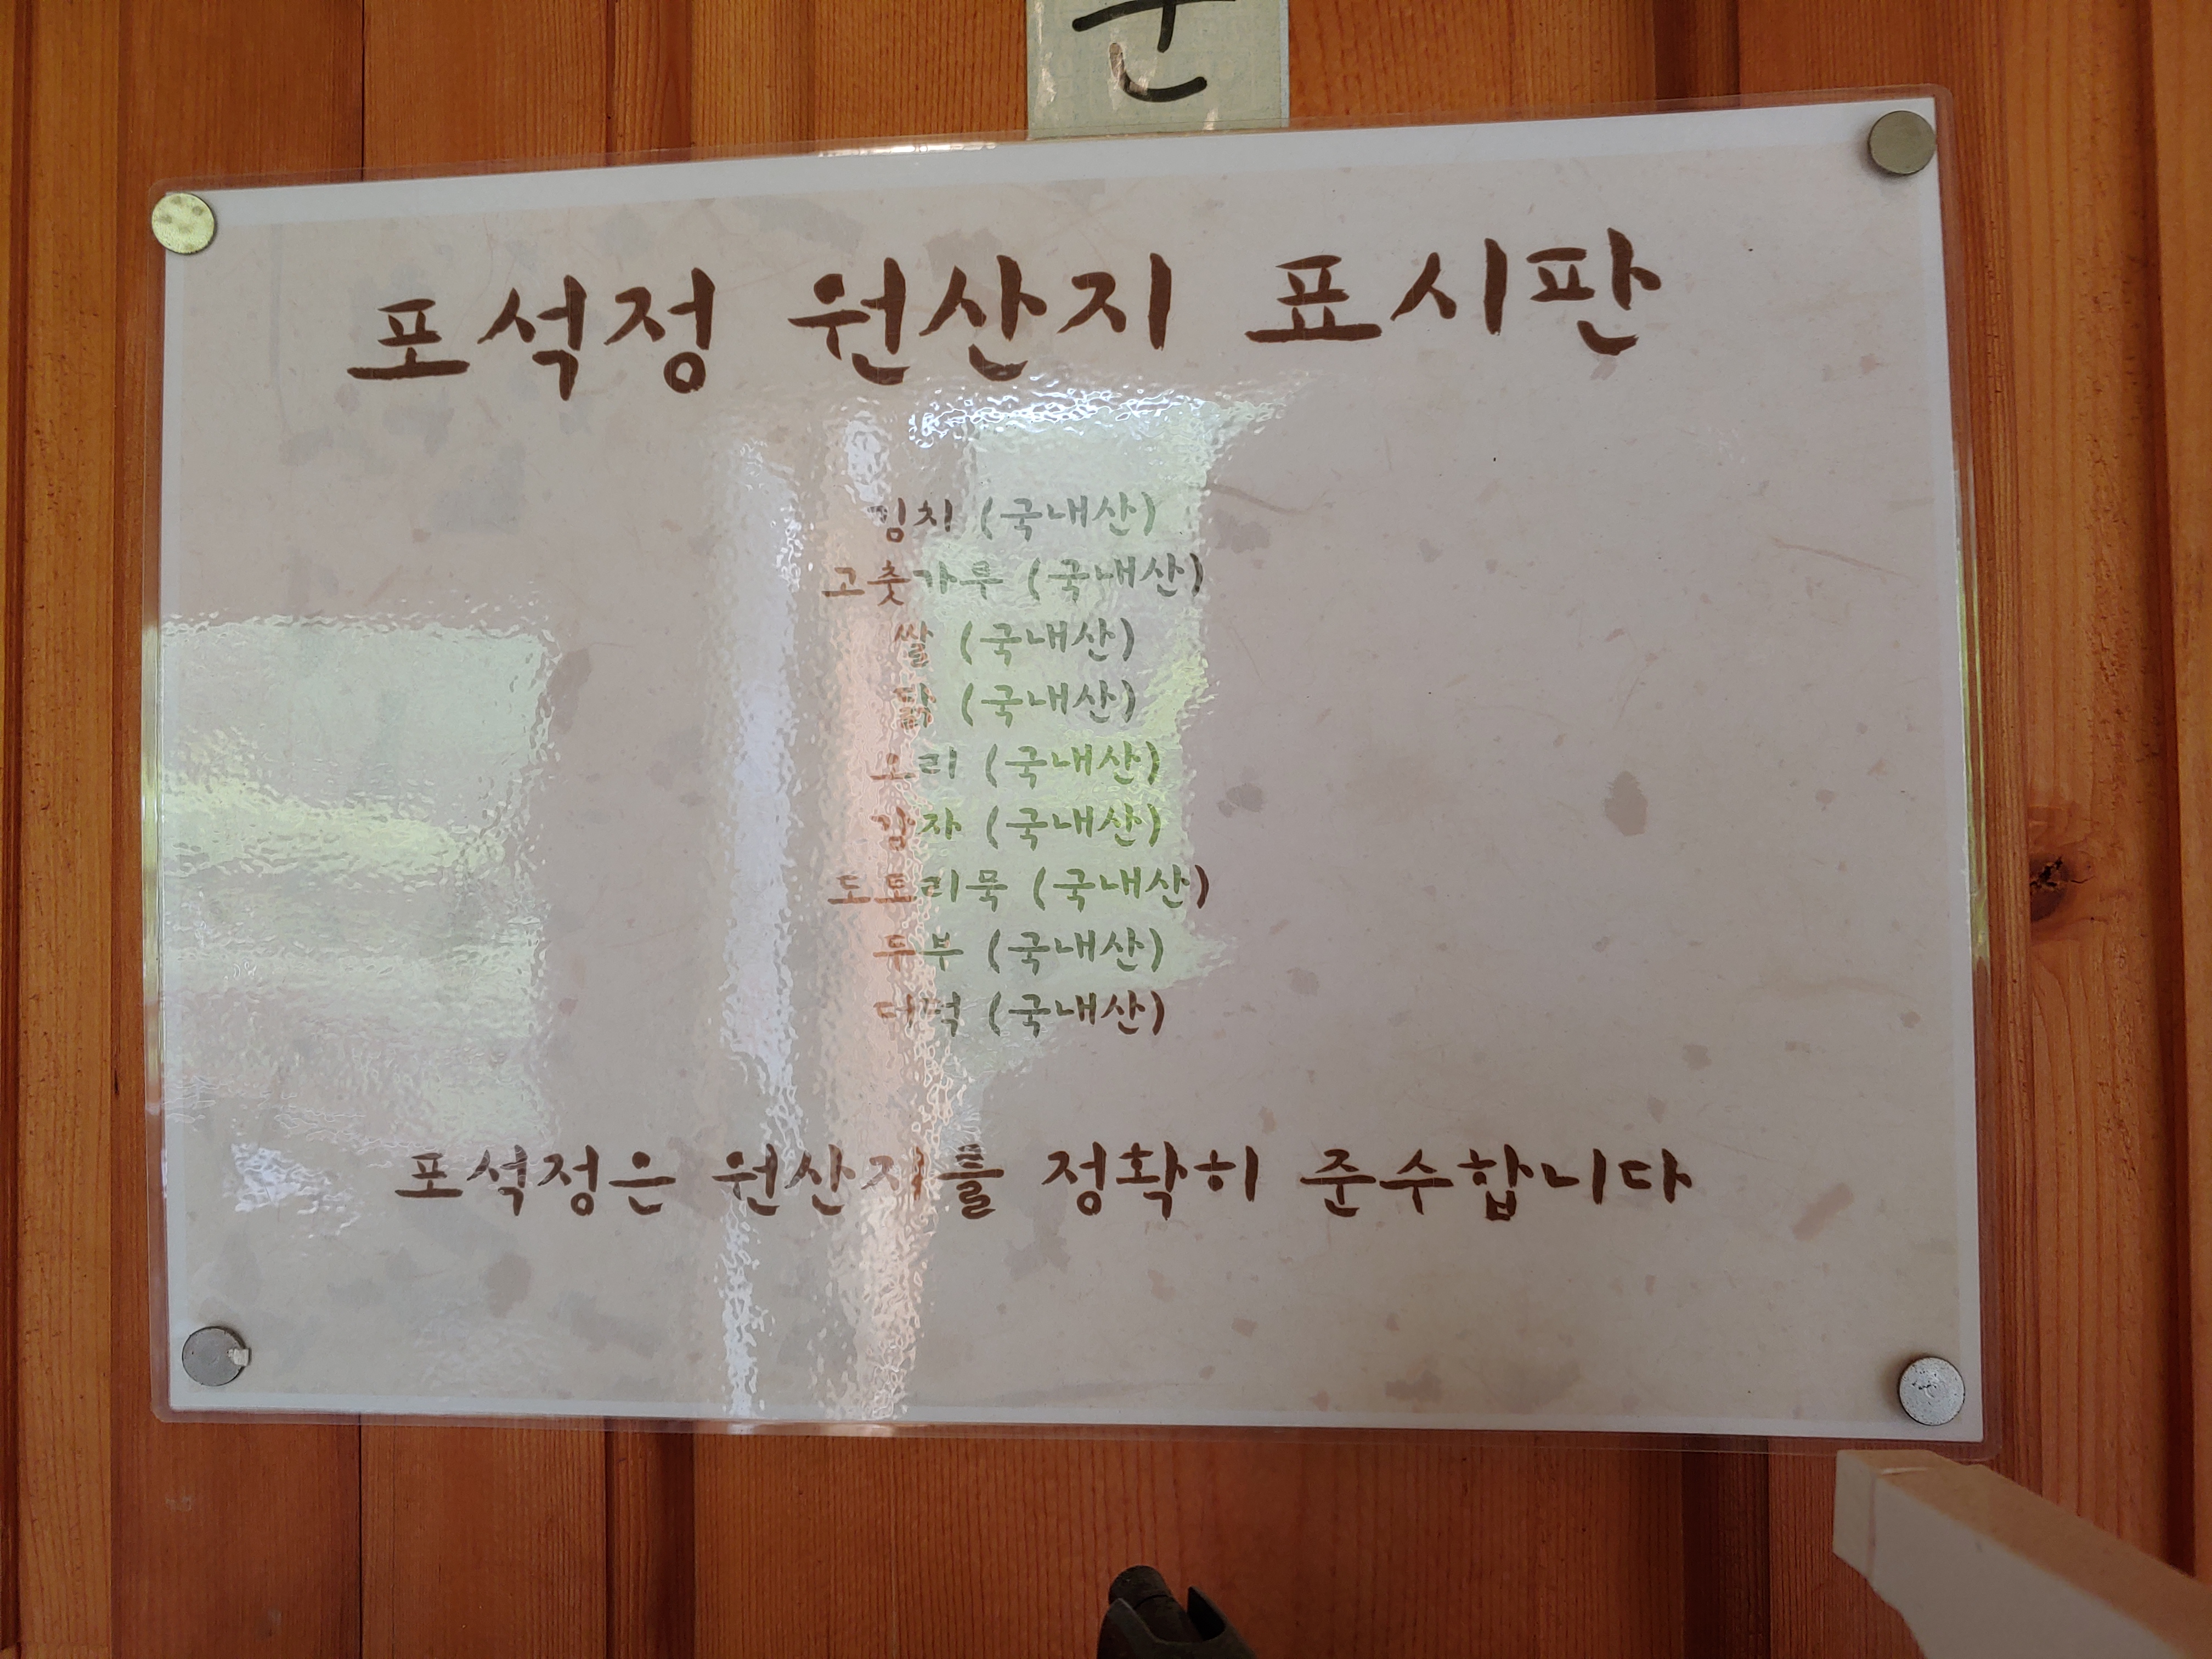 포석정 원산지 표시판
김치 (국내산)
고춧가루 (국내산)
쌀 (국내산)
닭 (국내산)
오리 (국내산)
감자 (국내산)
도토리묵 (국내산)
두부 (국내산)
더덕 (국내산)
포석정은 원산지를 정확히 준수합니다